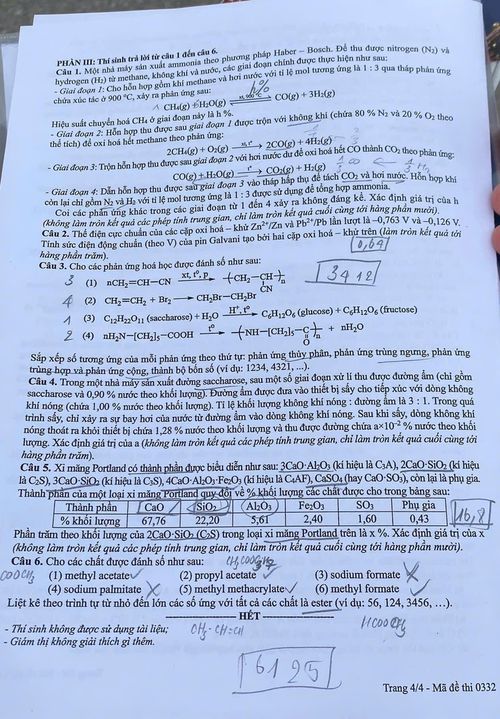 PHẦN III: Thí sinh trả lời từ câu 1 đến câu 6.
Câu 1. Một nhà máy sản xuất ammonia theo phương pháp Haber – Bosch. Để thu được nitrogen (N₂) và
hydrogen (H₂) từ methane, không khí và nước, các giai đoạn chính được thực hiện như sau:
- Giai đoạn 1: Cho hỗn hợp gồm khí methane và hơi nước với tỉ lệ mol tương ứng là 1 : 3 qua tháp phản ứng
chứa xúc tác ở 900 °C, xảy ra phản ứng sau:
CH₄(g) + H₂O(g) ⇌ CO(g) + 3H₂(g)
Hiệu suất chuyển hoá CH₄ ở giai đoạn này là h %.
- Giai đoạn 2: Hỗn hợp thu được sau giai đoạn 1 được trộn với không khí (chứa 80 % N₂ và 20 % O₂ theo
thể tích) để oxi hoá hết methane theo phản ứng:
2CH₄(g) + O₂(g) → 2CO(g) + 4H₂(g)
- Giai đoạn 3: Trộn hỗn hợp thu được sau giai đoạn 2 với hơi nước dư để oxi hoá hết CO thành CO₂ theo phản ứng:
CO(g) + H₂O(g) → CO₂(g) + H₂(g)
- Giai đoạn 4: Dẫn hỗn hợp thu được sau giai đoạn 3 vào tháp hấp thụ để tách CO₂ và hơi nước. Hỗn hợp khí
còn lại chỉ gồm N₂ và H₂ với tỉ lệ mol tương ứng là 1 : 3 được sử dụng để tổng hợp ammonia.
Coi các phản ứng khác trong các giai đoạn từ 1 đến 4 xảy ra không đáng kể. Xác định giá trị của h
(không làm tròn kết quả các phép tính trung gian, chỉ làm tròn kết quả cuối cùng tới hàng phần mười).
Câu 2. Thế điện cực chuẩn của các cặp oxi hoá – khử Zn²⁺/Zn và Pb²⁺/Pb lần lượt là –0,763 V và –0,126 V.
Tính sức điện động chuẩn (theo V) của pin Galvani tạo bởi hai cặp oxi hoá – khử trên (làm tròn kết quả tới
hàng phần trăm). 0,64
Câu 3. Cho các phản ứng hoá học được đánh số như sau: 3412
3 (1) nCH₂=CH−CN xt, t°, p → −(CH₂−CH(CN))−n
4 (2) CH₂=CH₂ + Br₂ → CH₂Br−CH₂Br
1 (3) C₁₂H₂₂O₁₁ (saccharose) + H₂O H⁺, t° → C₆H₁₂O₆ (glucose) + C₆H₁₂O₆ (fructose)
2 (4) nH₂N−[CH₂]₅−COOH t° → −(NH−[CH₂]₅−C(=O))−n + nH₂O
Sắp xếp số tương ứng của mỗi phản ứng theo thứ tự: phản ứng thủy phân, phản ứng trùng ngưng, phản ứng
trùng hợp và phản ứng cộng, thành bộ bốn số (ví dụ: 1234, 4321, ...).
Câu 4. Trong một nhà máy sản xuất đường saccharose, sau một số giai đoạn xử lí thu được đường ẩm (chỉ gồm
saccharose và 0,90 % nước theo khối lượng). Đường ẩm được đưa vào thiết bị sấy cho tiếp xúc với dòng không
khí nóng (chứa 1,00 % nước theo khối lượng). Tỉ lệ khối lượng không khí nóng : đường ẩm là 3 : 1. Trong quá
trình sấy, chỉ xảy ra sự bay hơi của nước từ đường ẩm vào dòng không khí nóng. Sau khi sấy, dòng không khí
nóng thoát ra khỏi thiết bị chứa 1,28 % nước theo khối lượng và thu được đường chứa a×10⁻² % nước theo khối
lượng. Xác định giá trị của a (không làm tròn kết quả các phép tính trung gian, chỉ làm tròn kết quả cuối cùng tới
hàng phần trăm).
Câu 5. Xi măng Portland có thành phần được biểu diễn như sau: 3CaO·Al₂O₃ (kí hiệu là C₃A), 2CaO·SiO₂ (kí hiệu
là C₂S), 3CaO·SiO₂ (kí hiệu là C₃S), 4CaO·Al₂O₃·Fe₂O₃ (kí hiệu là C₄AF), CaSO₄ (hay CaO·SO₃), còn lại là phụ gia.
Thành phần của một loại xi măng Portland quy đổi về % khối lượng các chất được cho trong bảng sau:
Thành phần CaO SiO₂ Al₂O₃ Fe₂O₃ SO₃ Phụ gia
% khối lượng 67,76 22,20 5,61 2,40 1,60 0,43
16,8
Phần trăm theo khối lượng của 2CaO·SiO₂ (C₂S) trong loại xi măng Portland trên là x %. Xác định giá trị của x
(không làm tròn kết quả các phép tính trung gian, chỉ làm tròn kết quả cuối cùng tới hàng phần mười).
Câu 6. Cho các chất được đánh số như sau:
(1) methyl acetate (2) propyl acetate (3) sodium formate
(4) sodium palmitate (5) methyl methacrylate (6) methyl formate
Liệt kê theo trình tự từ nhỏ đến lớn các số ứng với tất cả các chất là ester (ví dụ: 56, 124, 3456, …).
HẾT
HCOOCH₃
- Thí sinh không được sử dụng tài liệu;
- Giám thị không giải thích gì thêm.
6125
Trang 4/4 - Mã đề thi 0332